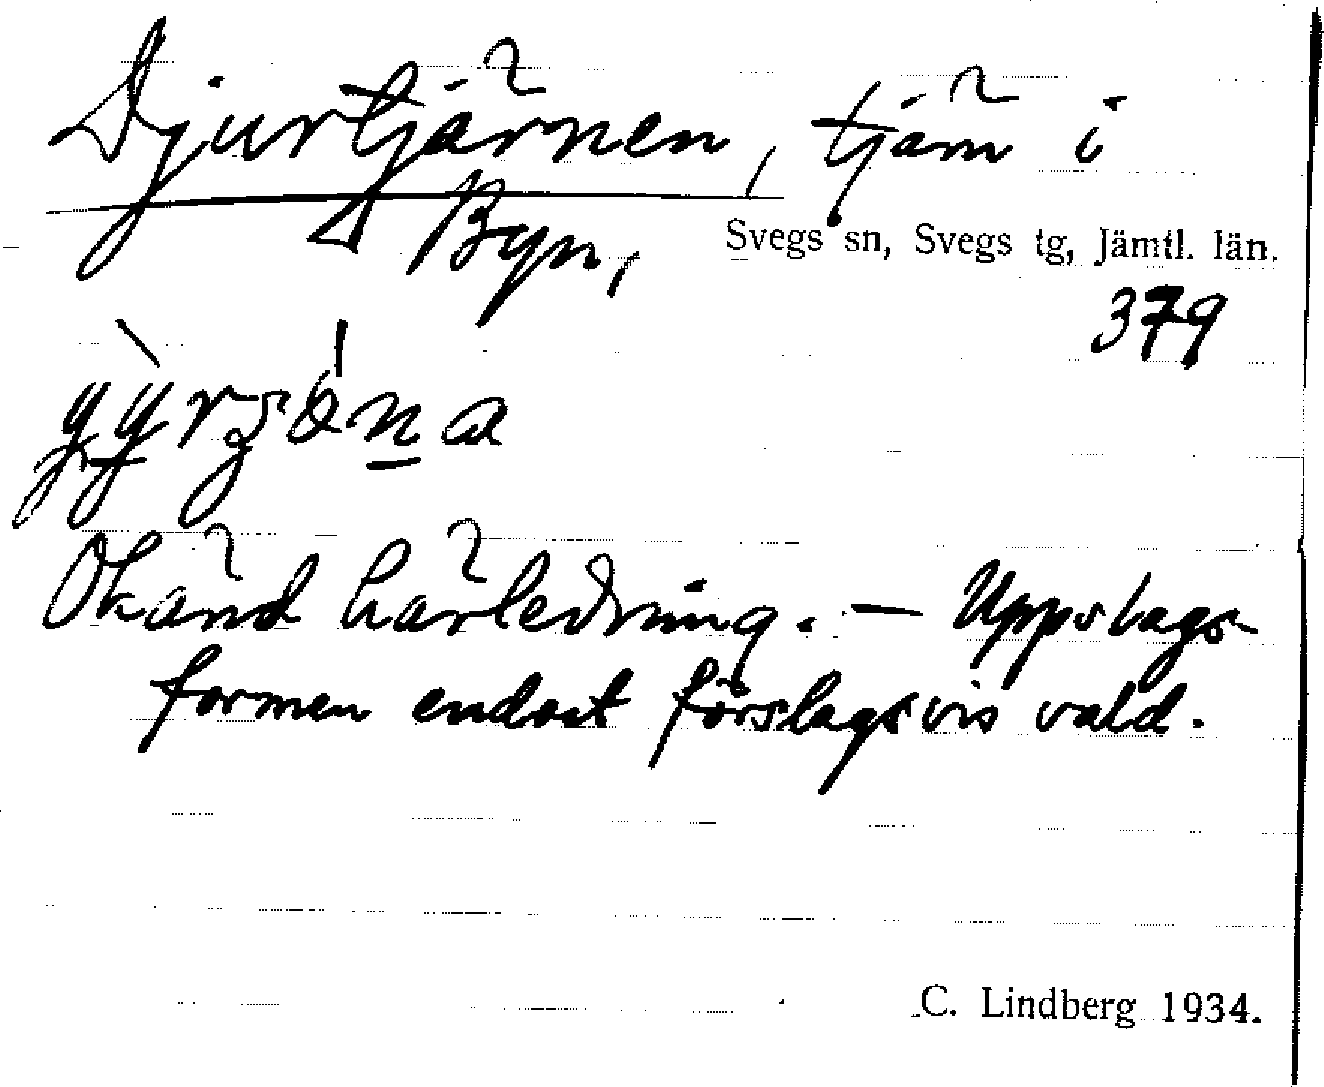 Djurtjärnen, tjärn i
Byn,
Svegs sn, Svegs tg, Jämtl. län.
379
Okänd härledning. — Uppslags-
formen endast förslagsvis vald.
C. Lindberg 1934.